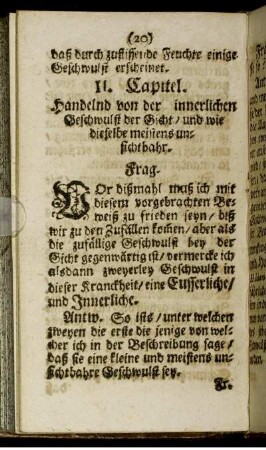 (20)
daß durch zufliessende Feuchte einige
Geschwulst erscheinet.
II. Capitel.
Handelnd von der innerlichen
Geschwulst der Gicht / und wie
dieselbe meistens un-
sichtbahr.
Frag.
VOr dißmahl muß ich mit
diesem vorgebrachten Be-
weiß zu frieden seyn / biß
wir zu den Zufällen kom̃en / aber als
die zufällige Geschwulst bey der
Gicht gegenwärtig ist / vermercke ich
alsdann zweyerley Geschwulst in
dieser Kranckheit / eine Eusserliche /
und Innerliche.
Antw. So ists / unter welchen
zweyen die erste die jenige von wel-
cher ich in der Beschreibung sage /
daß sie eine kleine und meistens un-
sichtbahre Geschwulst sey.
Fr.